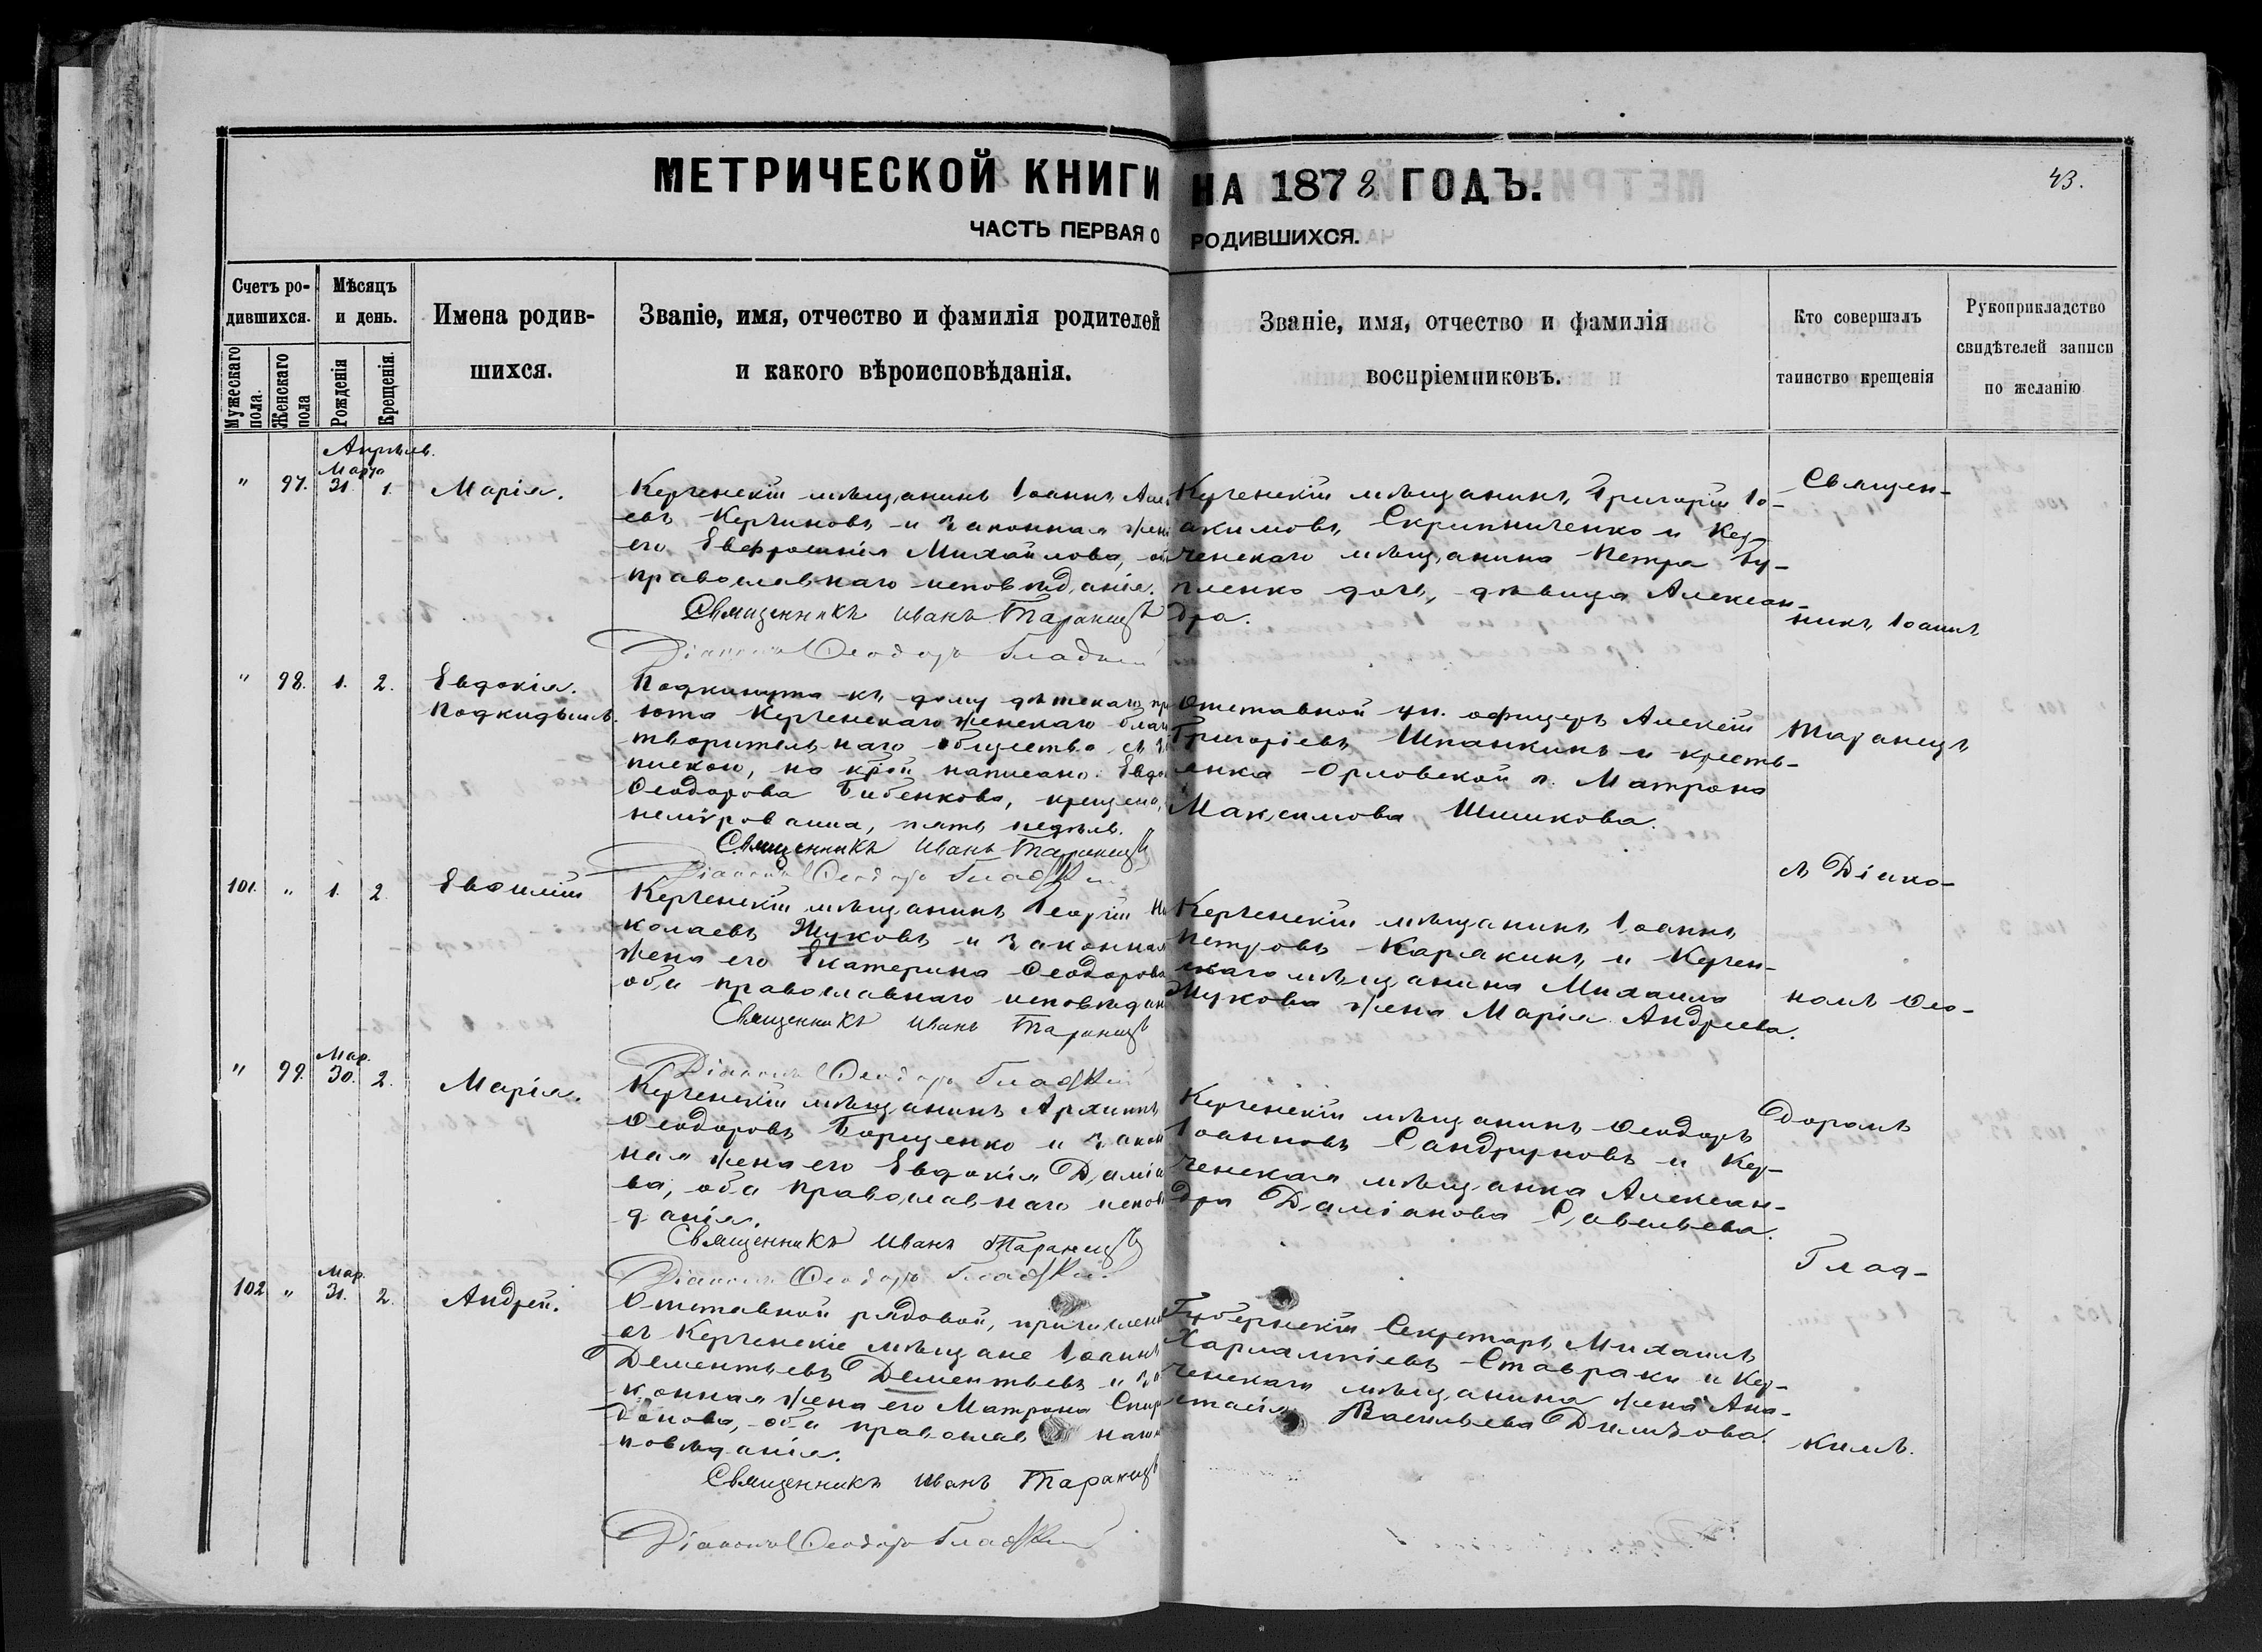 МЕТРИЧЕСКОЙ КНИГИ НА 1878 ГОДЪ.
43.
ЧАСТЬ ПЕРВАЯ О РОДИВШИХСЯ.
Счетъ родившихся.
Мужескаго пола.
Женскаго пола
Мѣсяцъ и день.
Рожденія
Крещенія.
Имена родившихся.
Званіе, имя, отчество и фамилія родителей
и какого вѣроисповѣданія.
Званіе, имя, отчество и фамилія
воспріемниковъ.
Кто совершалъ
таинство крещенія
Рукоприкладство
свидѣтелей записи
по желанію
Апрѣль.
Марта
" 97. 31. 1. Марія.
Керченскій мѣщанинъ Іоаннъ
евъ Керчиновъ и законная жена
его Евфросинія Михайлова,
православнаго исповѣданія.
Священникъ Иванъ Таранецъ
Діаконъ Ѳеодоръ Гладкій
Керченскій мѣщанинъ Григорій Іо-
акимовъ Скрипниченко и Кер-
ченскаго мѣщанина Петра
дочь, дѣвица Алексан-
дра.
" 98. 1. 2. Евдокія.
Подкидышъ.
Подкинута къ дому дѣтскаго прі
юта Керченскаго женскаго благо
творительнаго общества съ за
пиской, на коей написано: Евдокія
Ѳеодорова Бибенкова, крещена,
немѵрована, пять недѣль.
Священникъ Иванъ Таранецъ
Діаконъ Ѳеодоръ Гладкій
Отставной ун. офицеръ Алексій
Григоріевъ Шпанкинъ и кресть-
янка Орловской г. Матрона
Максимова Шишкова.
101. " 1. 2. Евѳимій
Керченскій мѣщанинъ Георгій Ни
колаевъ Жуковъ и законная
жена его Екатерина Ѳеодорова
оба православнаго исповѣдан
Священникъ Иванъ Таранецъ
Діаконъ Ѳеодоръ Гладкій
Керченскій мѣщанинъ Іоаннъ
Петровъ Каракинъ и Керчен-
скаго мѣщанина Михаила
Жукова жена Марія Андреева.
Мар.
" 99. 30. 2. Марія.
Керченскій мѣщанинъ Архиппъ
Ѳеодоровъ Борщенко и закон
ная жена его Евдокія Даміа
ва, оба православнаго исповѣ
данія.
Священникъ Иванъ Таранецъ
Діаконъ Ѳеодоръ Гладкій
Керченскій мѣщанинъ Ѳеодоръ
Іоанновъ Сандруновъ и Кер-
ченская мѣщанка Алексан-
дра Даміанова Савельева.
Мар.
102 " 31. 2. Андрей.
Отставной рядовой, причислен
въ Керченскіе мѣщане Іоаннъ
Дементьевъ Дементьевъ и за
конная жена его Матрона Спири
донова, оба православнаго
повѣданія.
Священникъ Иванъ Таранецъ
Діаконъ Ѳеодоръ Гладкій
Губернскій Секретарь Михаилъ
Харлампіевъ Ставраки и Кер-
ченскаго мѣщанина жена Ана-
стасія Васильева
Священ-
никъ Іоаннъ
Таранецъ
съ Діако-
номъ Ѳео-
доромъ
Глад-
кимъ.